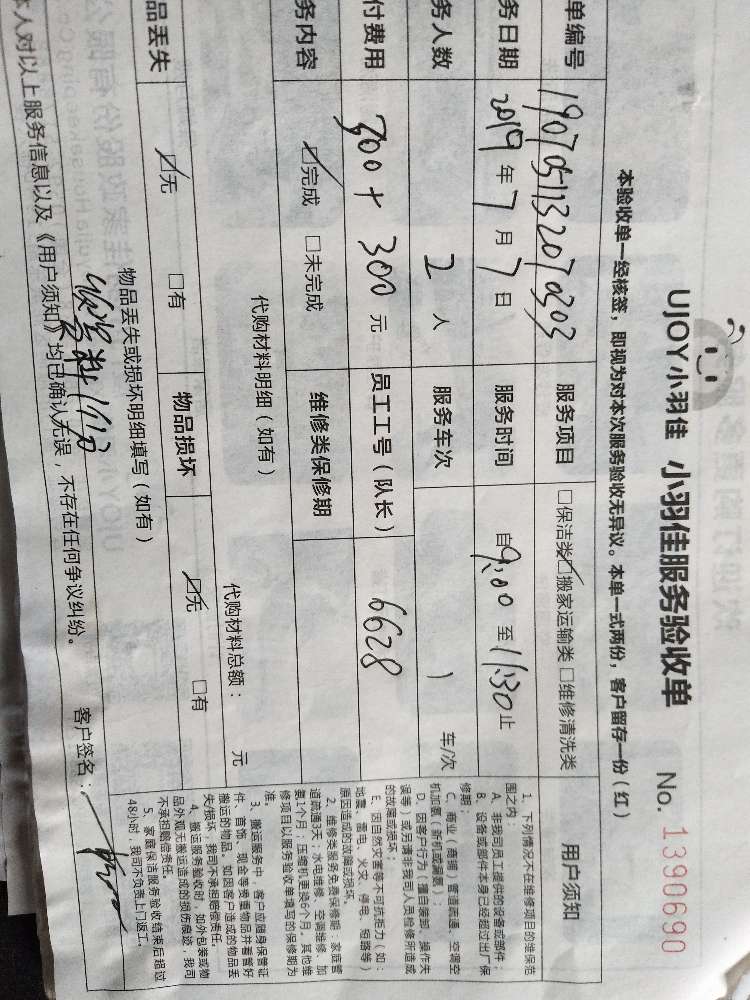 UJOY小羽佳 小羽佳服务验收单 No. 1390690
本验收单一经核签，即视为对本次服务验收无异议。本单一式两份，客户留存一份（红）
单编号 1907051132070303 服务项目 □保洁类 ☑搬家运输类 □维修清洗类
务日期 2019 年 7 月 7 日 服务时间 自 9:00 至 11:30 止
务人数 2 人 服务车次 1 车/次
付费用 300 + 300 元 员工工号（队长） 6628
务内容 ☑完成 □未完成 维修类保修期
代购材料明细（如有）
代购材料总额： 元
品丢失 ☑无 □有 物品损坏 ☑无 □有
物品丢失或损坏明细填写（如有）
本人对以上服务信息以及《用户须知》均已确认无误，不存在任何争议纠纷。
客户签名：
用户须知
1、下列情况不在维修项目的维保范
围之内：
A、非我司员工提供的设备或部件；
B、设备或部件本身已经超过出厂保
修期；
C、商业（商铺）管道疏通、空调空
机加氨（新机或漏氨）；
D、因客户行为（擅自装卸、操作失
误等）或后请非我司人员检修所造成
的故障或损坏；
E、因自然灾害等不可抗拒力（如：
地震、雷电，火灾，停电，短路等）
原因造成的故障或损坏。
2、维修类服务免费保修期：家庭管
道疏通3天；水电维修、空调维修、加
氨1个月；压缩机更换6个月。其他维
修项目以服务验收单填写的保修期为
准。
3、搬运服务中，客户应随身保管证
件、首饰、现金等贵重物品并看管好
搬运的物品。如因客户造成的物品丢
失/损坏，我司不承担赔偿责任。
4、搬运服务验收时，如外包装或物
品外观无搬运造成的损伤痕迹，我司
不承担赔偿责任。
5、家庭保洁服务验收结束后超过
48小时，我司不负责上门返工。